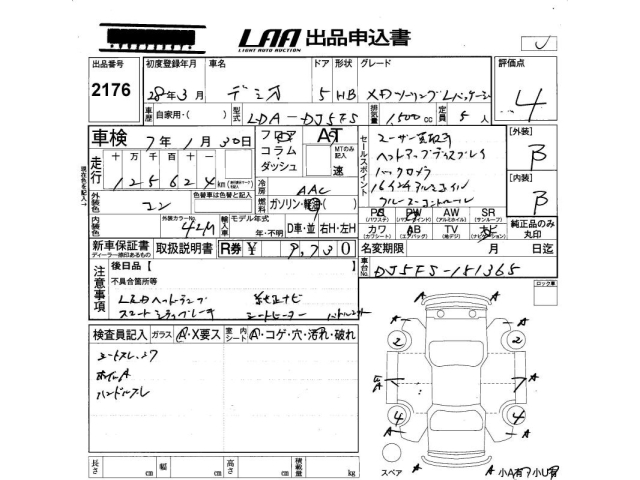 LAA 出品申込書
LIGHT AUTO AUCTION
出品番号 2176
初度登録年月 28年3月
車名 デミオ
ドア 5 形状 HB
グレード XDツーリングLパッケージ
評価点 4
車歴 自家用・( )
型式 LDA-DJ5FS
排気量 1,500cc
定員 5人
車検 7年1月30日
フロア コラム・ダッシュ
AT
MTのみ記入 速
セールスポイント
ユーザー買取車
ヘッドアップディスプレイ
バックカメラ
16インチアルミホイル
クルーズコントロール
[外装] B
[内装] B
走行 十万千百十一
125624 km
冷房 AAC
燃料 ガソリン・軽油( )
外装色 コン
色替車は色替と記入
外装カラーNo. 42M
輸入車 モデル年式 年・不明
D車・並 右H・左H
PS PW AW SR
(パワステ) (パワーウインド) (アルミホイール) (サンルーフ)
カワ AB TV ナビ
(カワシート) (エアバッグ) (地デジ) (ナビゲーション)
純正品のみ丸印
新車保証書
ディーラー捺印あるもの
取扱説明書
R券 ¥ 9,730
名変期限 月 日迄
車台No. DJ5FS-151365
注意事項
後日品 [ ]
不具合箇所等
LEDヘッドランプ 純正ナビ
スマートシティブレーキ シートヒーター パドルシフト
ロック車
検査員記入 ガラス A・X要ス 室内シート A・コゲ・穴・汚れ・破れ
シートスレ、コゲ
ホイルA
ハンドルスレ
A A A
2 2
A A
4 4
A A A
スペア
小A有 小U有
長さ cm 幅 cm 高さ cm 積載量 kg